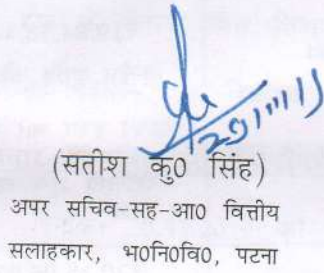 (सतीश कु0 सिंह)
अपर सचिव-सह-आ0 वित्तीय
सलाहकार, भ0नि0वि0, पटना